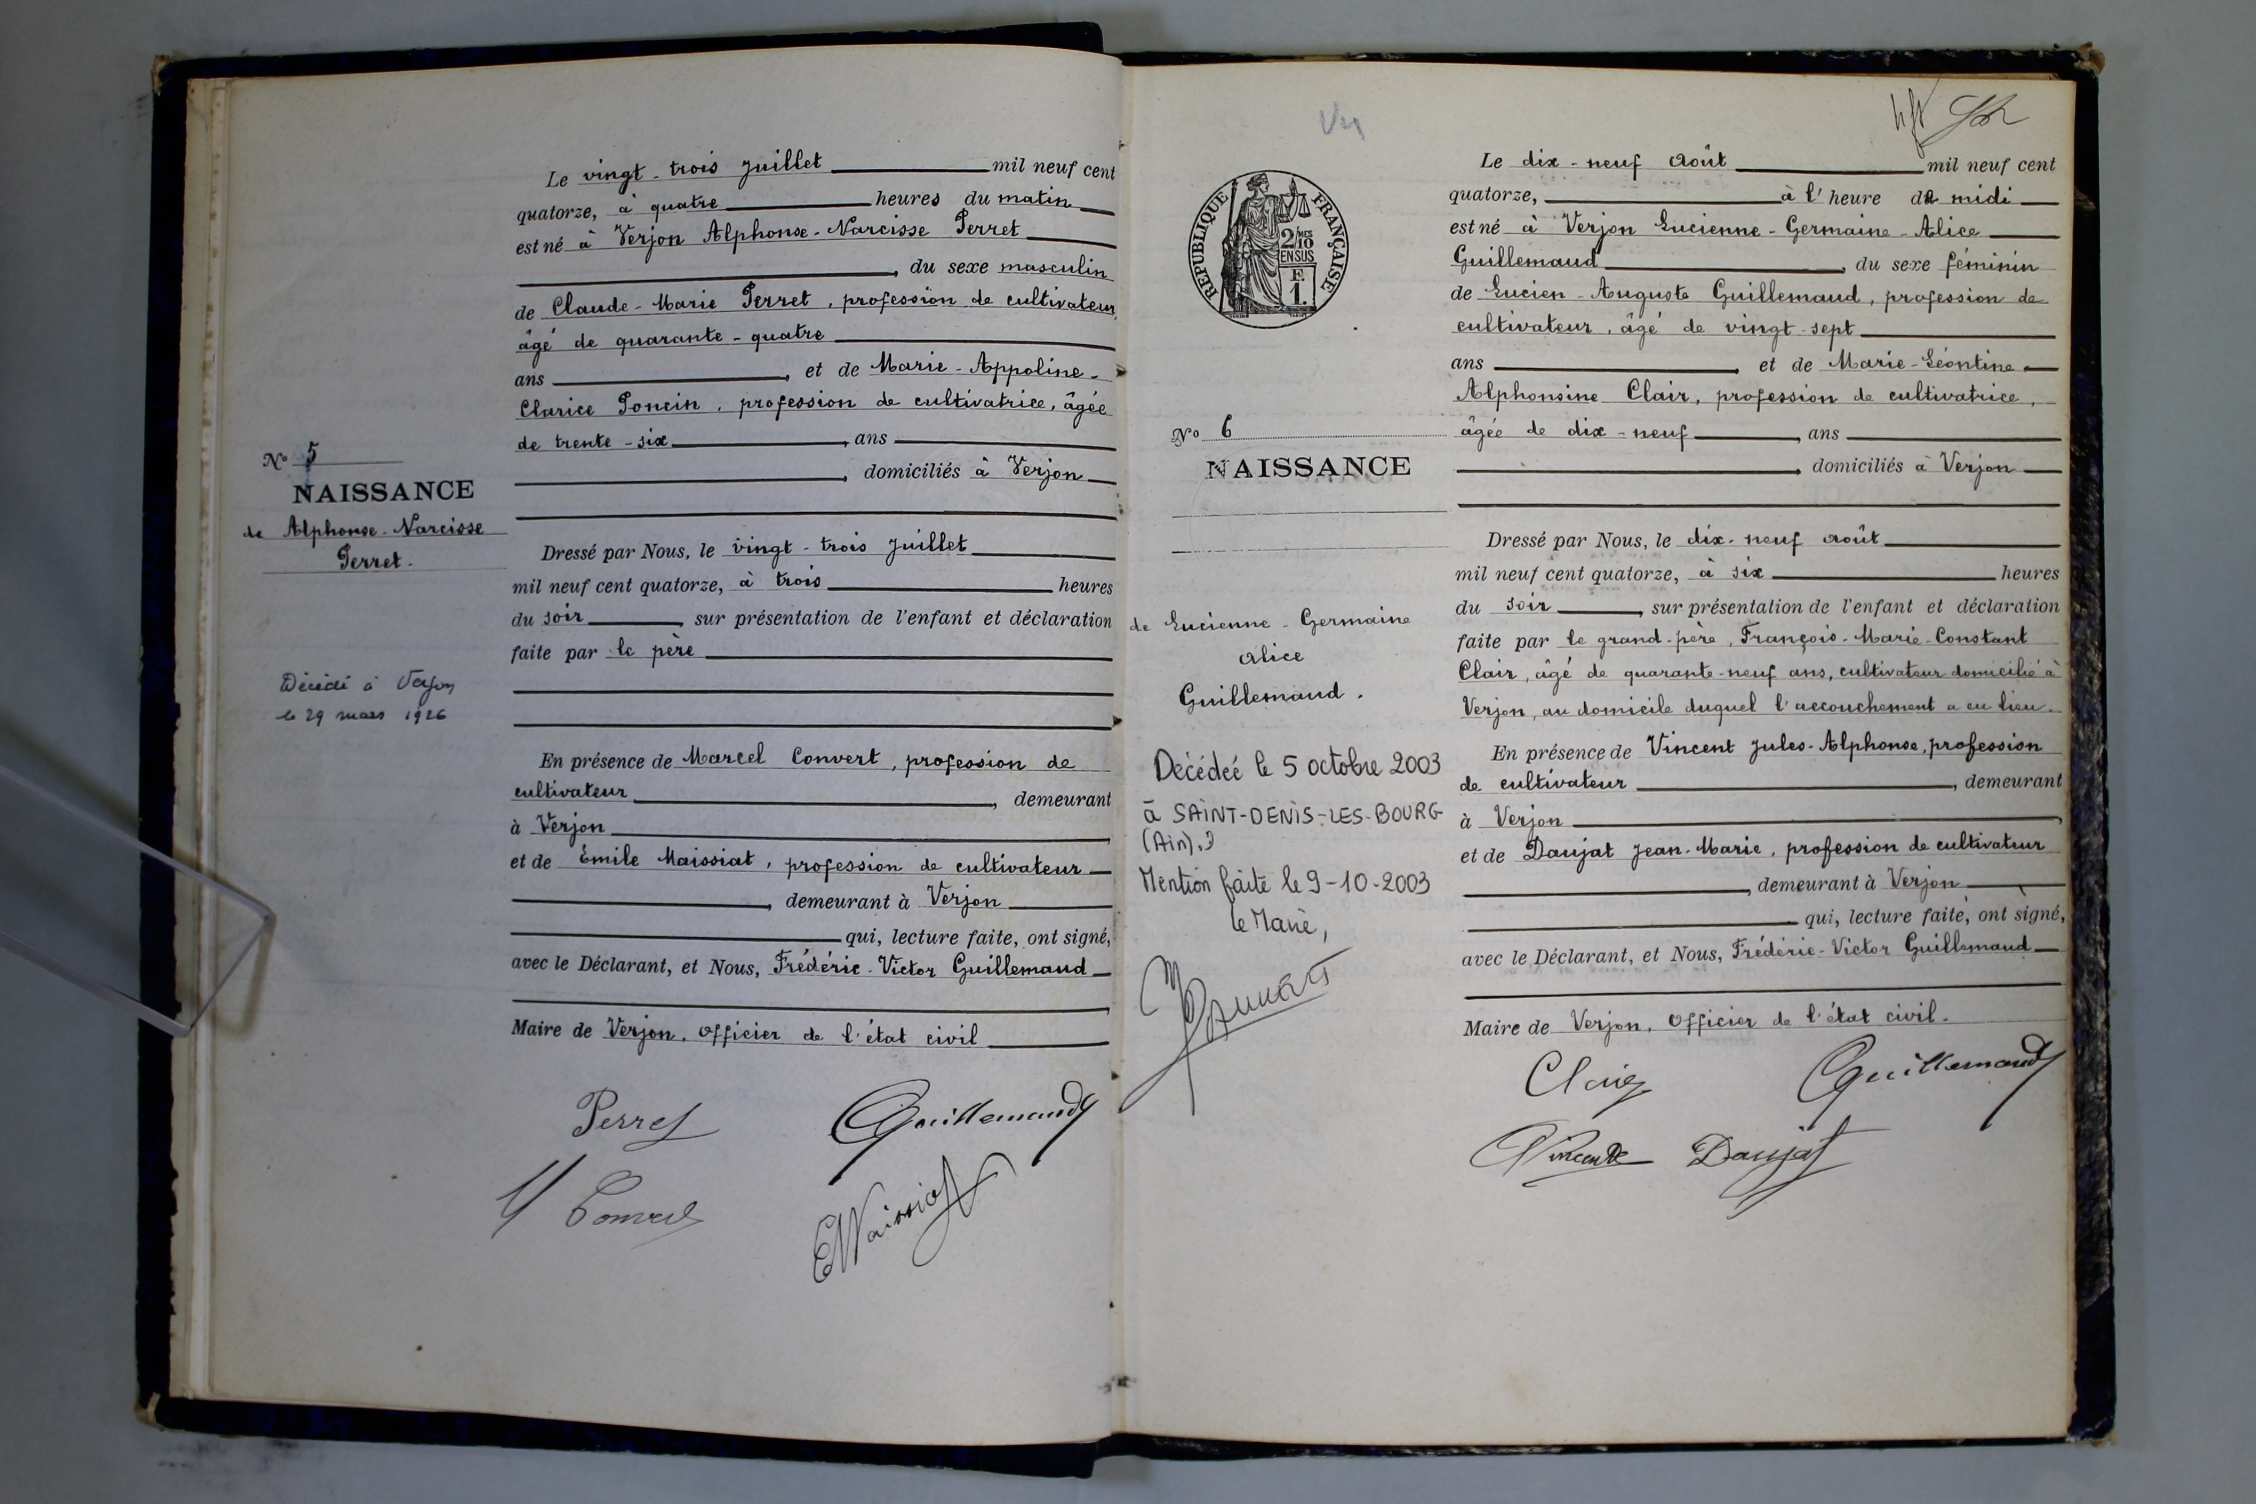 Le vingt-trois Juillet mil neuf cent
quatorze, à quatre heures du matin
est né à Verjon Alphonse-Narcisse Perret
, du sexe masculin
de Claude-Marie Perret, profession de cultivateur,
âgé de quarante-quatre
ans, et de Marie-Appoline-
Clarice Poncin, profession de cultivatrice, âgée
de trente-six, ans
, domiciliés à Verjon
No 5
NAISSANCE
de Alphonse-Narcisse
Perret.
Dressé par Nous, le vingt-trois Juillet
mil neuf cent quatorze, à trois heures
du soir, sur présentation de l'enfant et déclaration
faite par le père
Décédé à Verjon
le 29 mars 1926
En présence de Marcel Convert, profession de
cultivateur, demeurant
à Verjon
et de Emile Maissiat, profession de cultivateur
, demeurant à Verjon
qui, lecture faite, ont signé,
avec le Déclarant, et Nous, Frédéric-Victor Guillemaud
,
Maire de Verjon, officier de l'état civil
Perret
Guillemaud
M Convert
EMaissiat
RÉPUBLIQUE FRANÇAISE
2/10 MES
EN SUS
F.
1.
No 6
NAISSANCE
de Lucienne-Germaine
Alice
Guillemaud.
Décédée le 5 octobre 2003
à SAINT-DENIS-LES-BOURG
(Ain).
Mention faite le 9-10-2003
le Maire,
Le dix-neuf Août mil neuf cent
quatorze, à l'heure de midi
est né à Verjon Lucienne-Germaine-Alice
Guillemaud, du sexe féminin
de Lucien-Auguste Guillemaud, profession de
cultivateur, âgé de vingt-sept
ans, et de Marie-Léontine
Alphonsine Clair, profession de cultivatrice,
âgée de dix-neuf, ans
, domiciliés à Verjon
Dressé par Nous, le dix-neuf août
mil neuf cent quatorze, à six heures
du soir, sur présentation de l'enfant et déclaration
faite par le grand-père, François-Marie-Constant
Clair, âgé de quarante-neuf ans, cultivateur domicilié à
Verjon, au domicile duquel l'accouchement a eu lieu.
En présence de Vincent Jules-Alphonse, profession
de cultivateur, demeurant
à Verjon,
et de Daujat Jean-Marie, profession de cultivateur
, demeurant à Verjon
qui, lecture faite, ont signé,
avec le Déclarant, et Nous, Frédéric-Victor Guillemaud
Maire de Verjon, officier de l'état civil.
Clair
Guillemaud
Vincent
Daujat